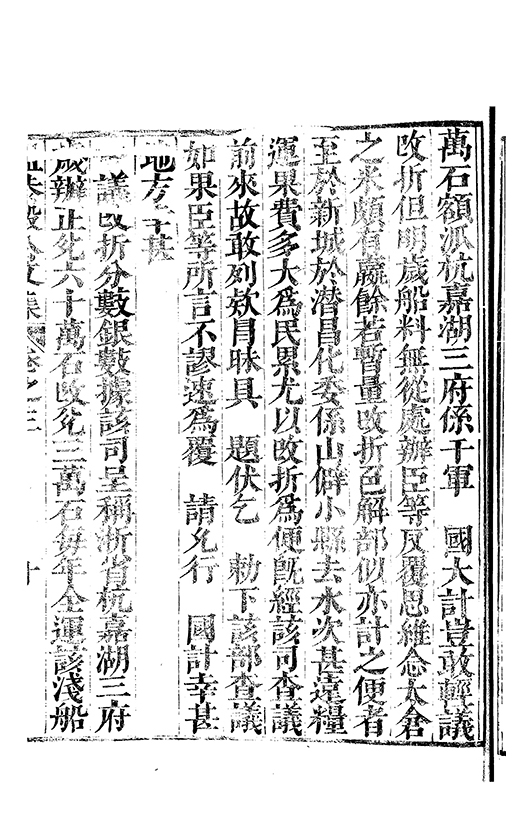 萬石額派杭嘉湖三府係干軍　國大計豈敢輕議
改折但明歲船料無從處辦臣等反覆思維念太倉
之米頗有贏餘若暫量改折色解部似亦計之便者
至於新城於潛昌化委係山僻小縣去水次甚遠糧
運果費多大為民累尤以改折為便既經該司查議
前來故敢列欵冒昧具　題伏乞　勅下該部查議
如果臣等所言不謬速為覆　請允行　國計幸甚
地方幸甚
一議改折分數銀數據該司呈稱浙省杭嘉湖三府
歲辦正兊六十萬石改兊三萬石每年全運該淺船
卷之三
十